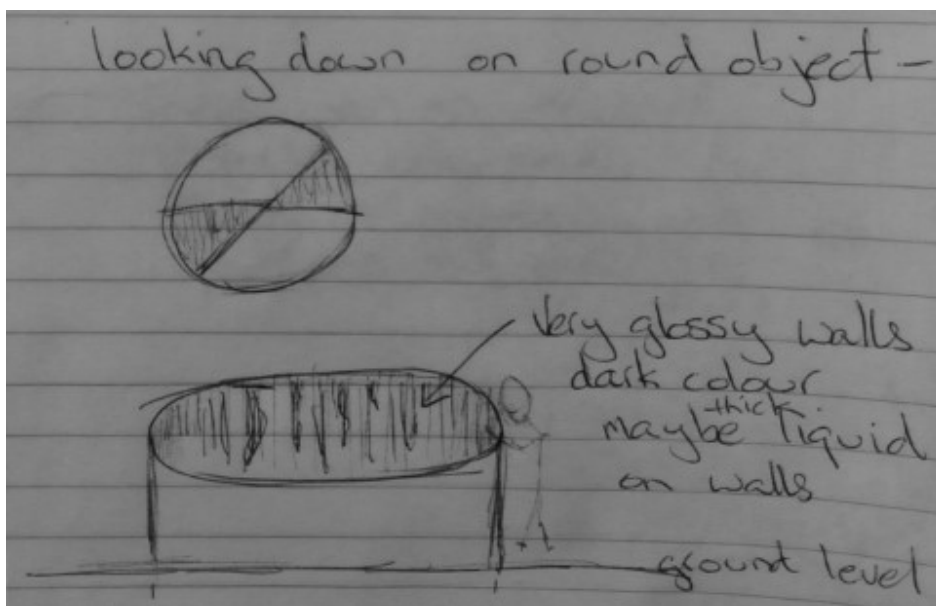 looking down on round object -
very glossy walls
dark colour
maybe thick liquid
on walls
ground level